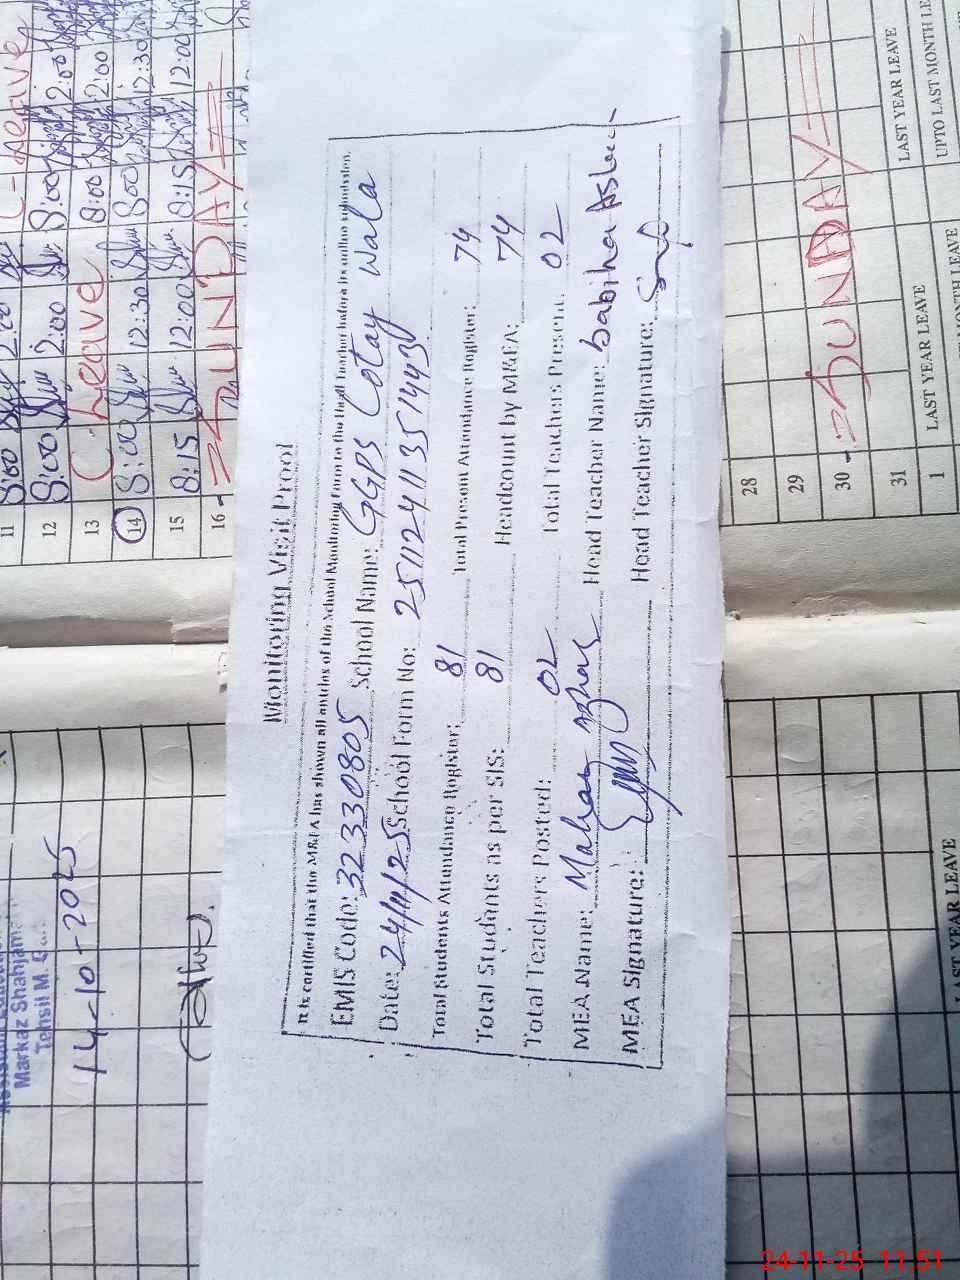 Monitoring Visit Proof
It is certified that the MEA has shown all entries of the School Monitoring Form to the Head Teacher before its online submission.
EMIS Code: 32330805 School Name: GGPS Cotay Wala
Date: 24/11/25 School Form No: 2511241135144430
Total Students Attendance Register: 81 Total Present Attendance Register: 74
Total Students as per SIS: 81 Headcount by MEA: 74
Total Teachers Posted: 02 Total Teachers Present. 02
MEA Name: Mahar Azhar Head Teacher Name: Sabiha
MEA Signature: Head Teacher Signature:
11 8:00 2:00
12 8:00 2:00 8:00 2:00
13 C. Leave 8:00 2:00
14 8:00 12:30 8:00 12:30
15 8:15 12:00 8:15 12:00
16 SUNDAY
28
29
30 SUNDAY
31 LAST YEAR LEAVE
1 LAST YEAR LEAVE UPTO LAST MONTH
Markaz Shahjama
Tehsil M.
14-10-2025
LAST YEAR LEAVE
24-11-25 11:51